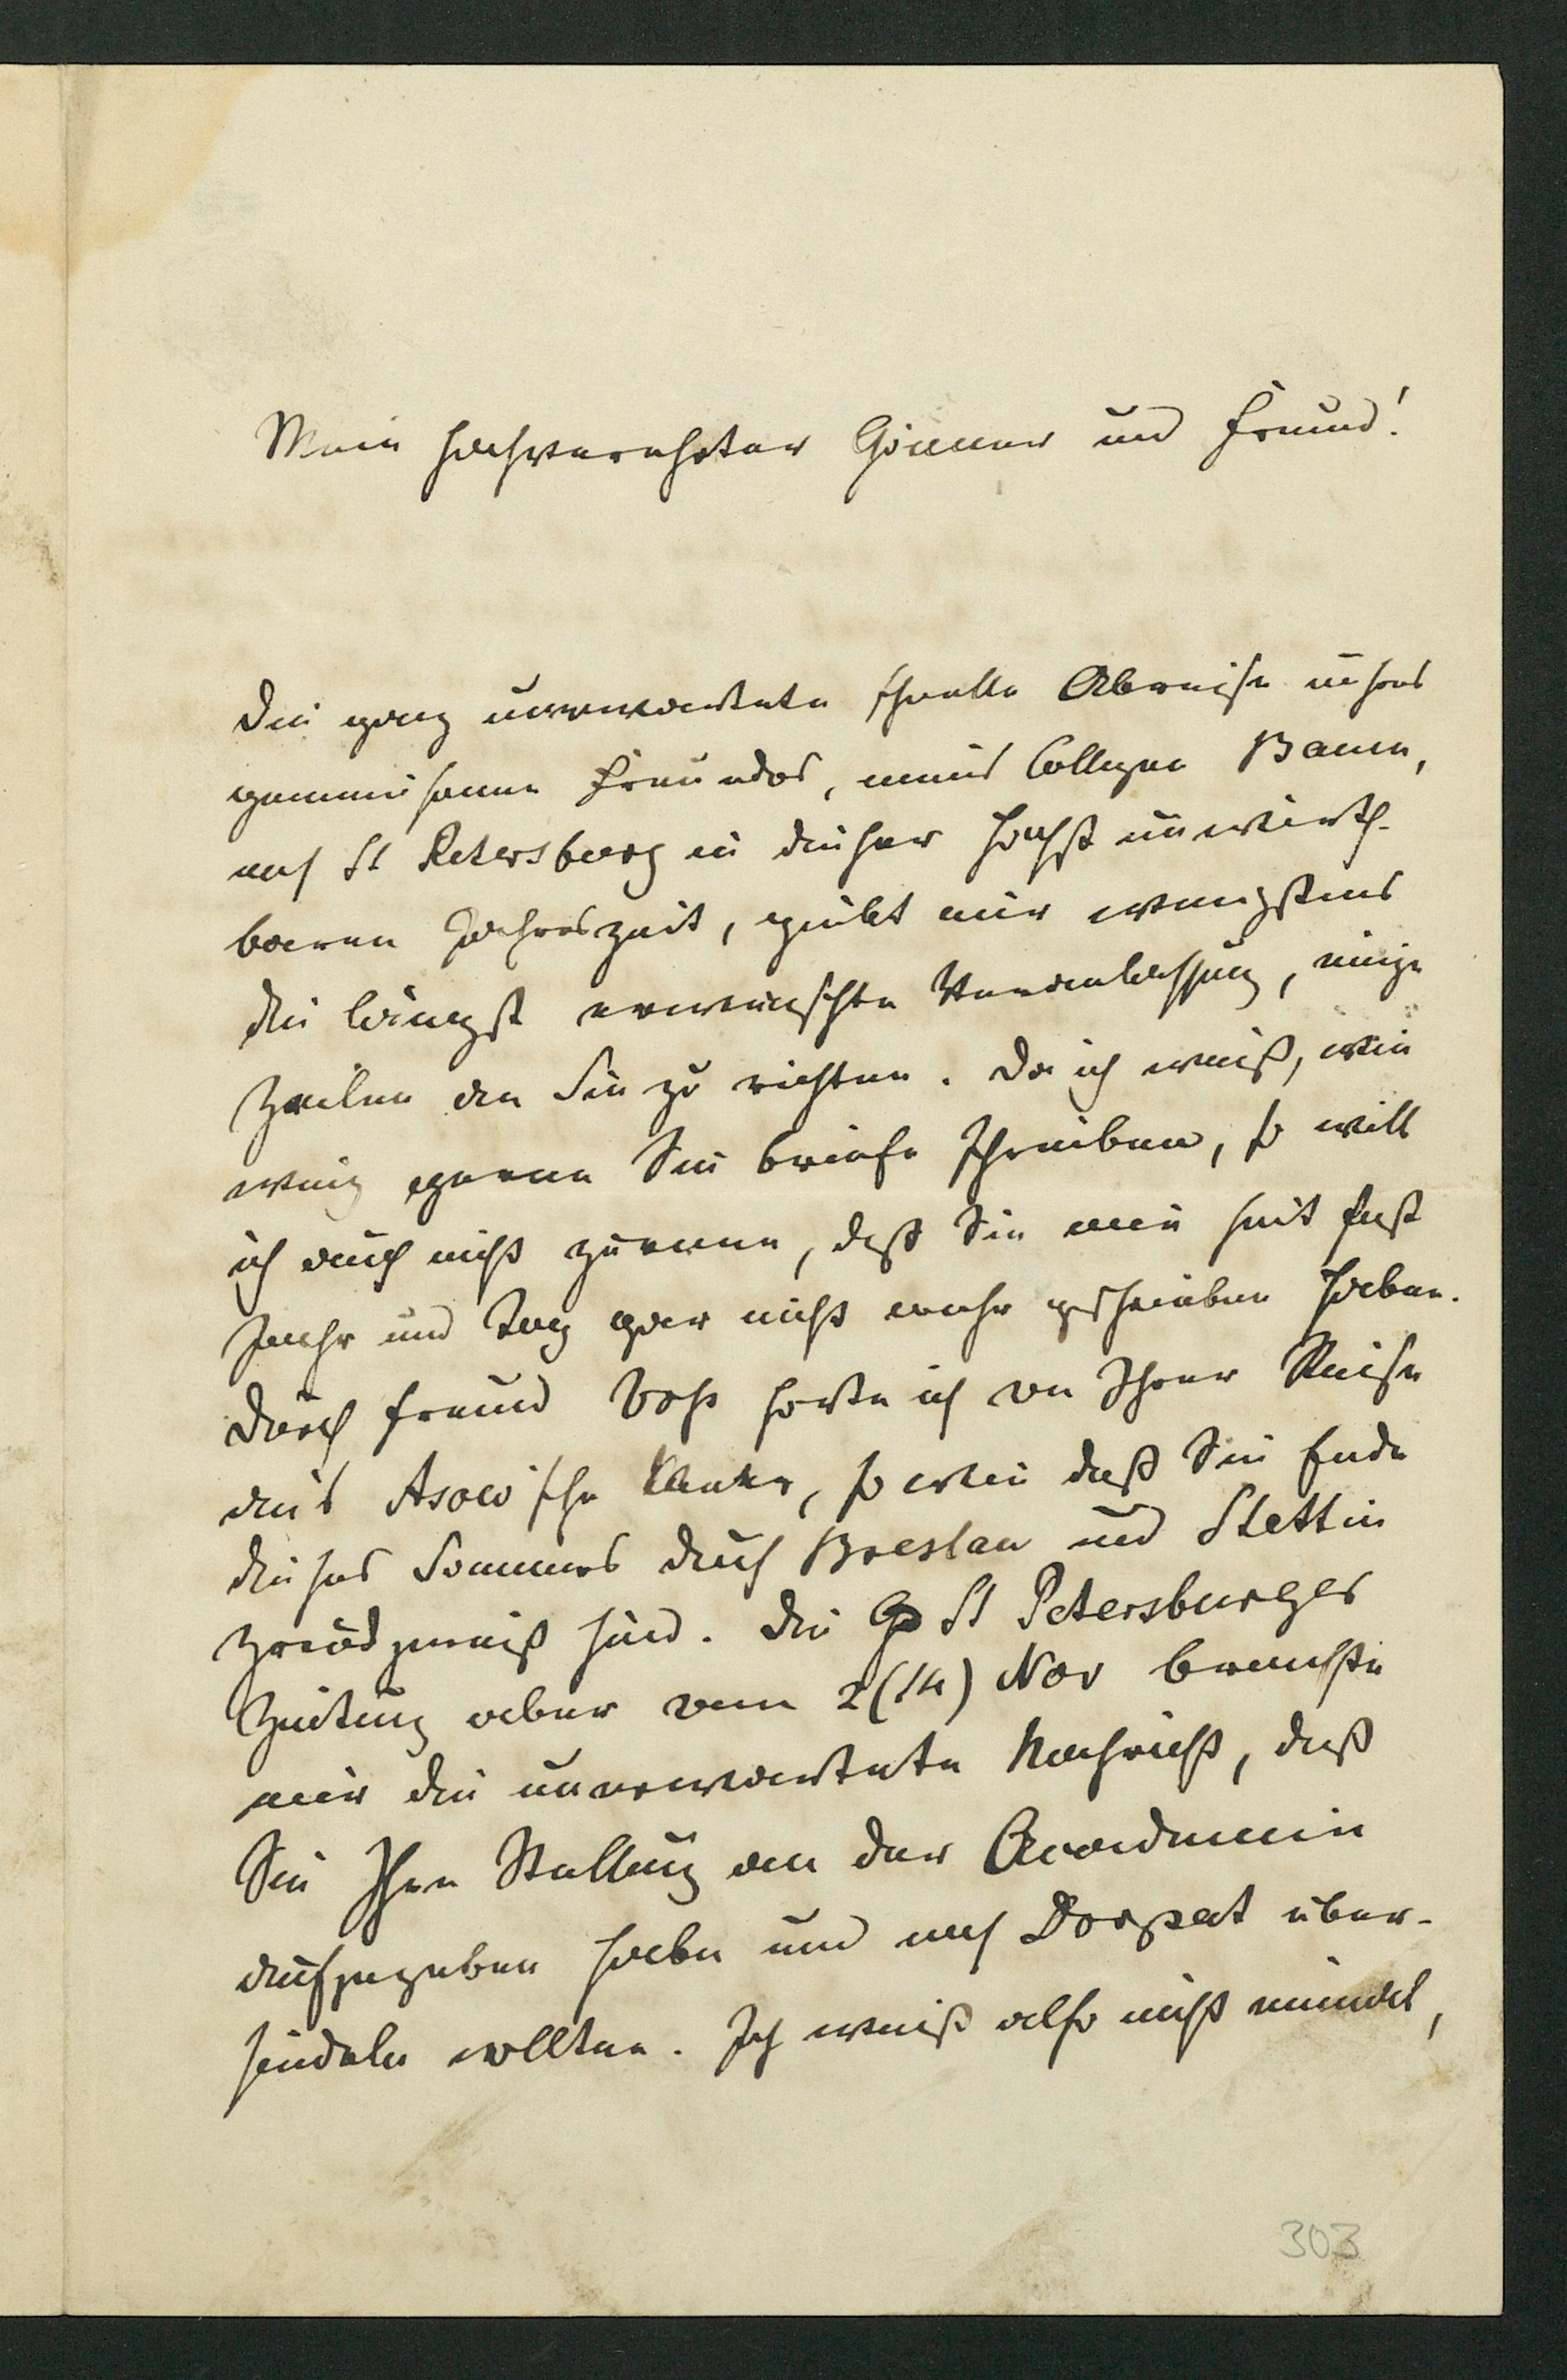 Mein hochverehrter Gönner und Freund!
Die ganz unerwartete schnelle Abreise unsres
gemeinsamen Freundes, meines Collegen Baum,
nach St Petersburg in dieser höchst unwirth-
baren Jahreszeit, giebt mir wenigstens
die längst erwünschte Veranlassung, einige
Zeilen an Sie zu richten. Da ich weiß, wie
wenig gerne Sie Briefe schreiben, so will
ich auch nicht zürnen, daß Sie mir seit fast
Jahr und Tag gar nicht mehr geschrieben haben.
Durch Freund Voss hörte ich von Ihrer Reise
an's Asow'sche Meer, so wie daß Sie Ende
dieses Sommers durch Breslau und Stettin
zurückgereist sind. Die St Petersburger
Zeitung aber vom 2 (14) Nov brachte
mir die unerwartete Nachricht, daß
Sie Ihre Stellung an der Academie
aufgegeben haben und nach Dorpat über-
siedeln wollten. Ich weiß also nicht einmal,
303